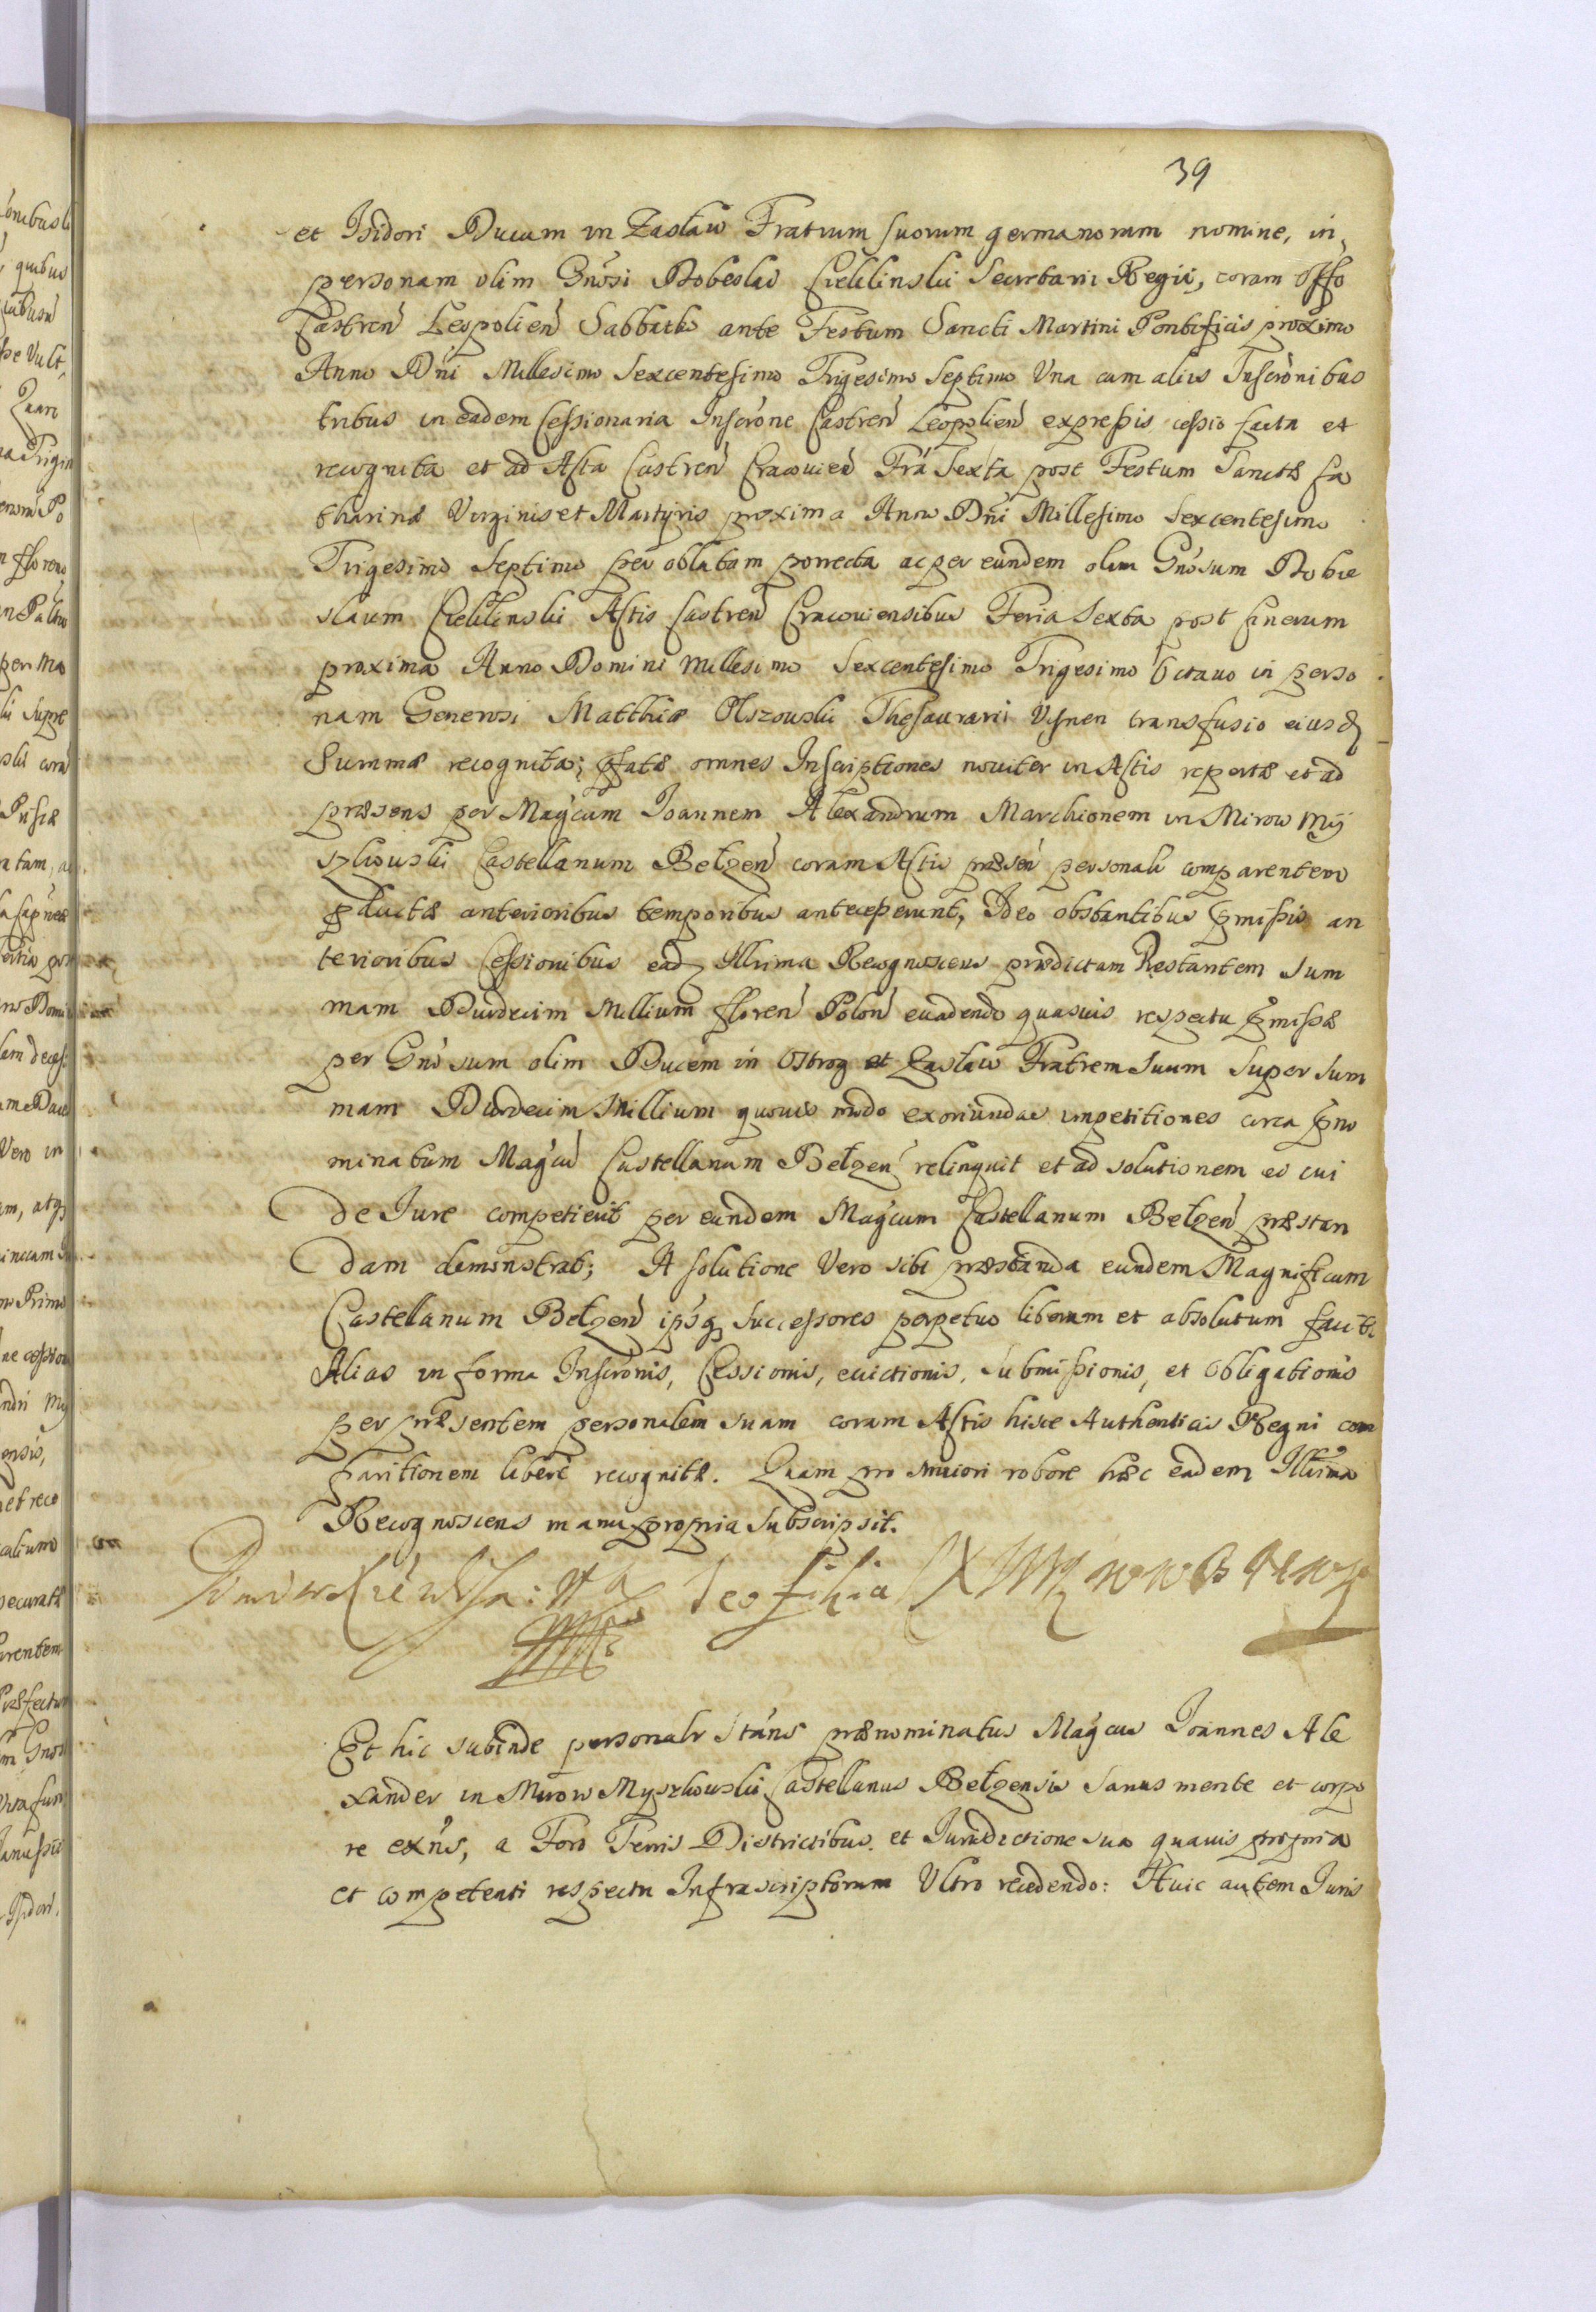 39
et Isidori Ducum in Zasław Fratrum suorum germanorum nomine, in
personam olim Gnosi Dobeslai Cieklinskii Secretarii Regii, coram Offo
Castren Leopolien Sabbatho ante Festum Sancti Martini Pontificis proximo
Anno Dni Millesimo Sexcentesimo Trigesimo Septimo Una cum aliis Inscronibus
tribus in eadem Cessionaria Inscrone Castren Leopolien expressis cessio facta et
recognita et ad Acta Castren Cracouien Fra Sexta post Festum Sanctæ Ca
tharinæ Virginis et Martyris proxima Anno Dni Millesimo Sexcentesimo
Trigesimo Septimo per oblatam porrecta ac per eundem olim Gnosum Dobie
slaum Cieklinskii Actis Castren Cracouiensibus Feria Sexta post Cinerum
proxima Anno Domini Millesimo Sexcentesimo Trigesimo Octauo in perso
nam Generosi Matthiæ Olszouskii Thesaurarii Visnen transfusio eiusd
Summæ recognita; pfatæ omnes Inscriptiones nouiter in Actis repertæ et ad
præsens per Magcum Joannem Alexandrum Marchionem in Mirow Mij
szkouskii Castellanum Bełzen coram Actis præsen personalr comparentem
pductæ anterioribus temporibus antecesserunt, Ideo obstantibus pmissis an
terioribus Cessionibus ead Illrima Recognoscens prædictam Restantem Sum
mam Duodecim Millium floren Polon euadendo quasuis respectu pmissæ
per Gnosum olim Ducem in Ostrog et Zasław Fratrem Suum Super Sum
mam Duodecim Millium quouis modo exoriundas impetitiones circa pno
minatum Magcu Castellanum Bełzen relinquit et ad solutionem eo cui
de Jure competierit per eundem Magcum Castellanum Bełzen præstan
dam demonstrat; A solutione Vero sibi præstanda eundem Magnificum
Castellanum Bełzen ipsq Successores perpetuo liberum et absolutum facit.
Alias in forma Inscronis, Cessionis, euictionis, Submissionis, et Obligationis
per præsentem personalem suam coram Actis hisce Authenticis Regni com
paritionem libere recognitæ. Quam pro maiori robore hæc eadem Illrima
Recognoscens manu propria Subscripsit.
Teofilia
Et hic subinde personalr Stans prænominatus Magcus Joannes Ale
xander in Mirow Myszkouskii Castellanus Bełzensis Sanus mente et corpo
re exns, a Foro Terris Districtibus. et Jurisdictione sua quauis propria
et competenti respectu Infrascriptorum Ultro recedendo: Huic autem Juris